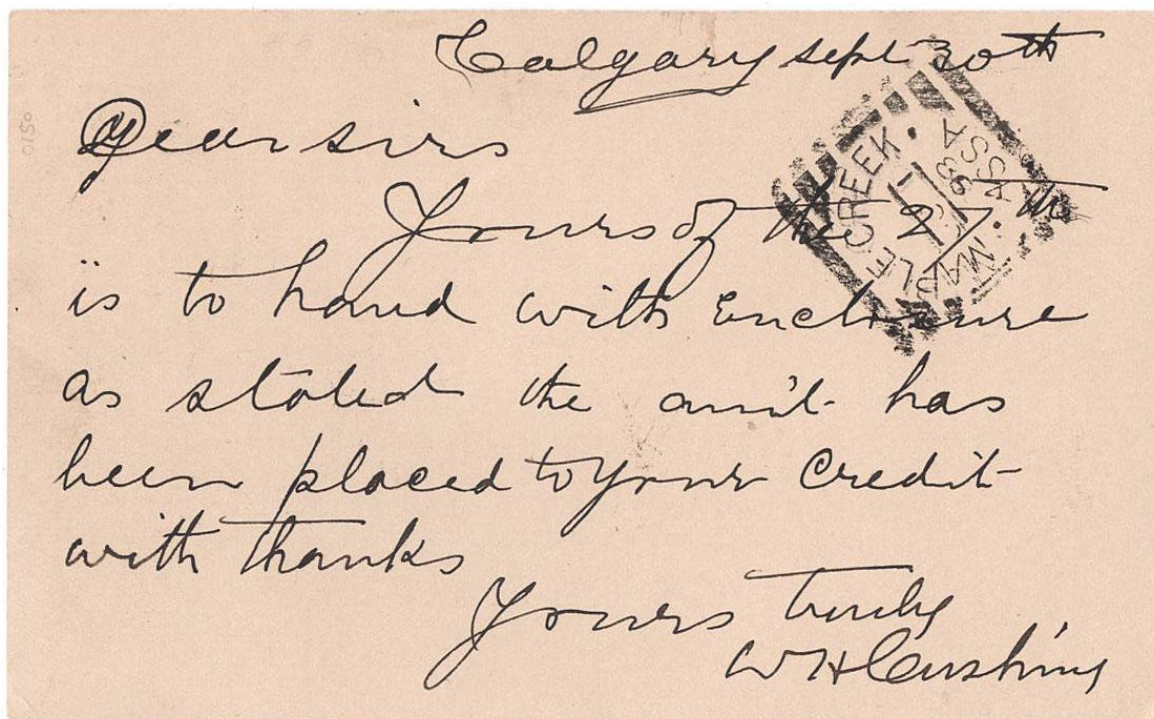 Calgary sept 30th
Dear sirs
Yours of the 27th
is to hand with enclosure
as stated the am't has
been placed to your credit
with thanks
Yours truly
W H Cushing
MAPLE CREEK.
ASSA.
93
0150